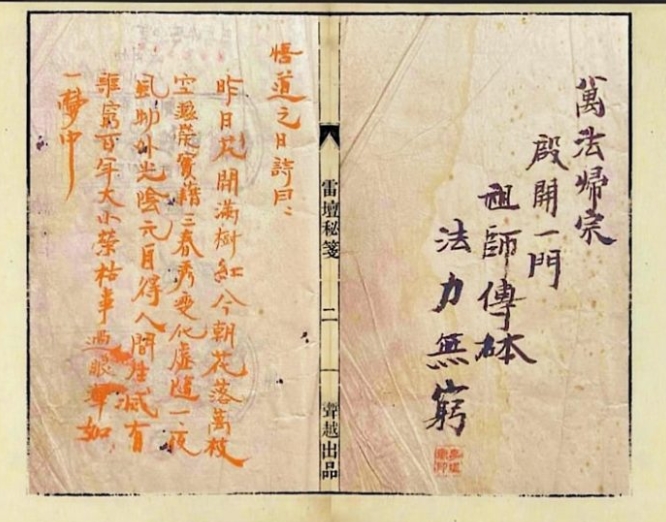 萬法歸宗
殷開一門
祖師傳砵
法力無窮
雷壇秘箋
二
聲越出品
悟道之日詩曰：
昨日花開滿樹紅今朝花落萬枝
空滋榮實藉三春秀變化虛隨一夜
風物外光陰元自得人間生滅有
誰窮百年大小榮枯事過眼渾如
一夢中